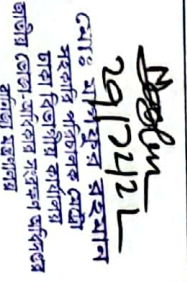 মোঃ রহমান
সহকারি পরিচালক (মেট্রো)
ঢাকা বিভাগীয় কার্যালয়
জাতীয় ভোক্তা-অধিকার সংরক্ষণ অধিদপ্তর
বাণিজ্য মন্ত্রণালয়